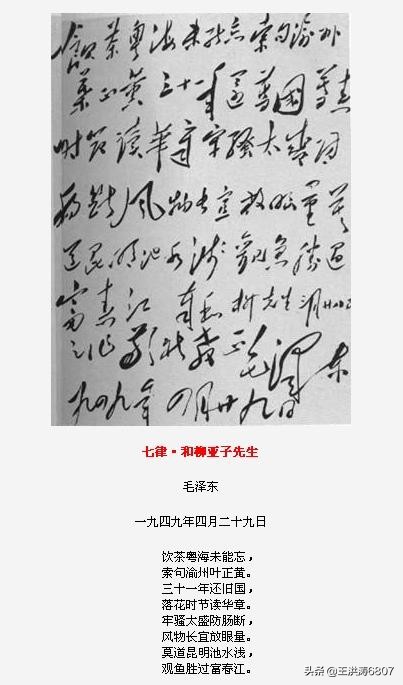 飲茶粤海未能忘索句渝州
葉正黄三十一年還舊國落花
時节讀華章牢騷太盛防
腸斷风物长宜放眼量莫
道昆明池水浅觀魚勝過
富春江 奉和柳先生三月廿八日
之作敬祈教正 毛泽东
一九四九年 四月廿九日
七律·和柳亚子先生
毛泽东
一九四九年四月二十九日
饮茶粤海未能忘，
索句渝州叶正黄。
三十一年还旧国，
落花时节读华章。
牢骚太盛防肠断，
风物长宜放眼量。
莫道昆明池水浅，
观鱼胜过富春江。
头条 @王洪涛6807